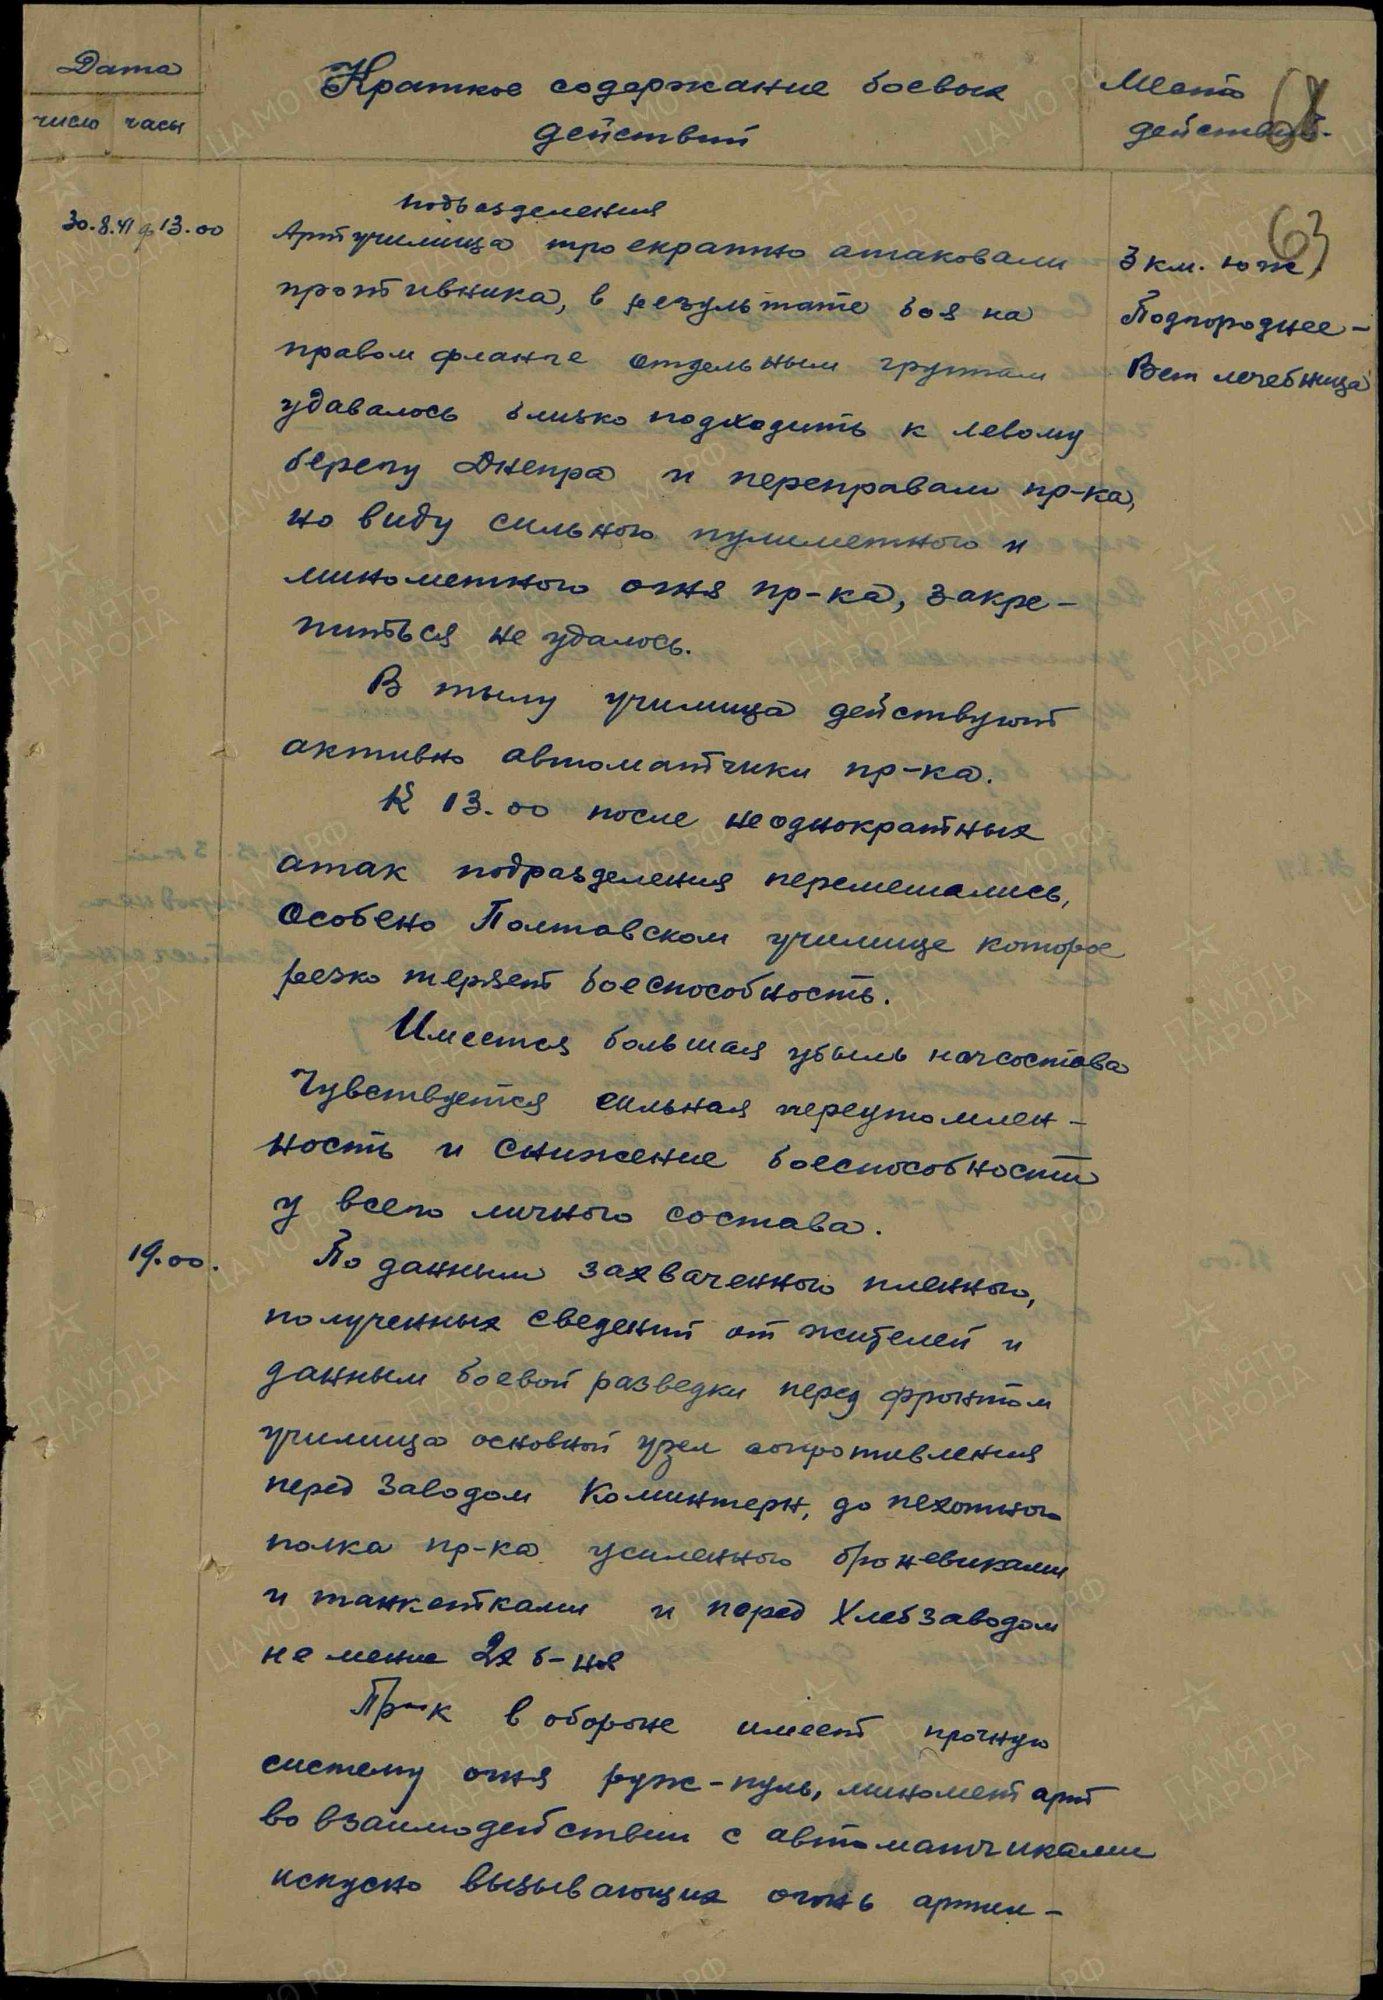 Дата
число часы
Краткое содержание боевых
действий
Место
действий.
63
30.8.41 д 13.00
подразделения
Артучилища троекратно атаковали
противника, в результате боя на
правом фланге отдельным группам
удавалось близко подходить к левому
берегу Днепра и переправам пр-ка,
но виду сильного пулеметного и
минометного огня пр-ка, закре-
питься не удалось.
3 км. юж.
Подгороднее-
Вет лечебница
В тылу училища действуют
активно автоматчики пр-ка.
К 13.00 после неоднократных
атак подразделения перемешались,
Особено Полтавском училище которое
резко теряет боеспособность.
Имеется большая убыль начсостава
Чувствуется сильная переутомлен-
ность и снижение боеспособности
у всего личного состава.
19.00.
По данным захваченного пленного,
полученных сведений от жителей и
данным боевой разведки перед фронтом
училища основной узел сопротивления
перед Заводом Коминтерн, до пехотного
полка пр-ка усиленного броневиками
и танкетками и перед Хлебзаводом
не менее 2х б-нов
Пр-к в обороне имеет прочную
систему огня руж-пуль, миномет арт
во взаимодействии с автоматчиками
искусно вызывающих огонь артил-
ЦА МО РФ
ПАМЯТЬ
НАРОДА